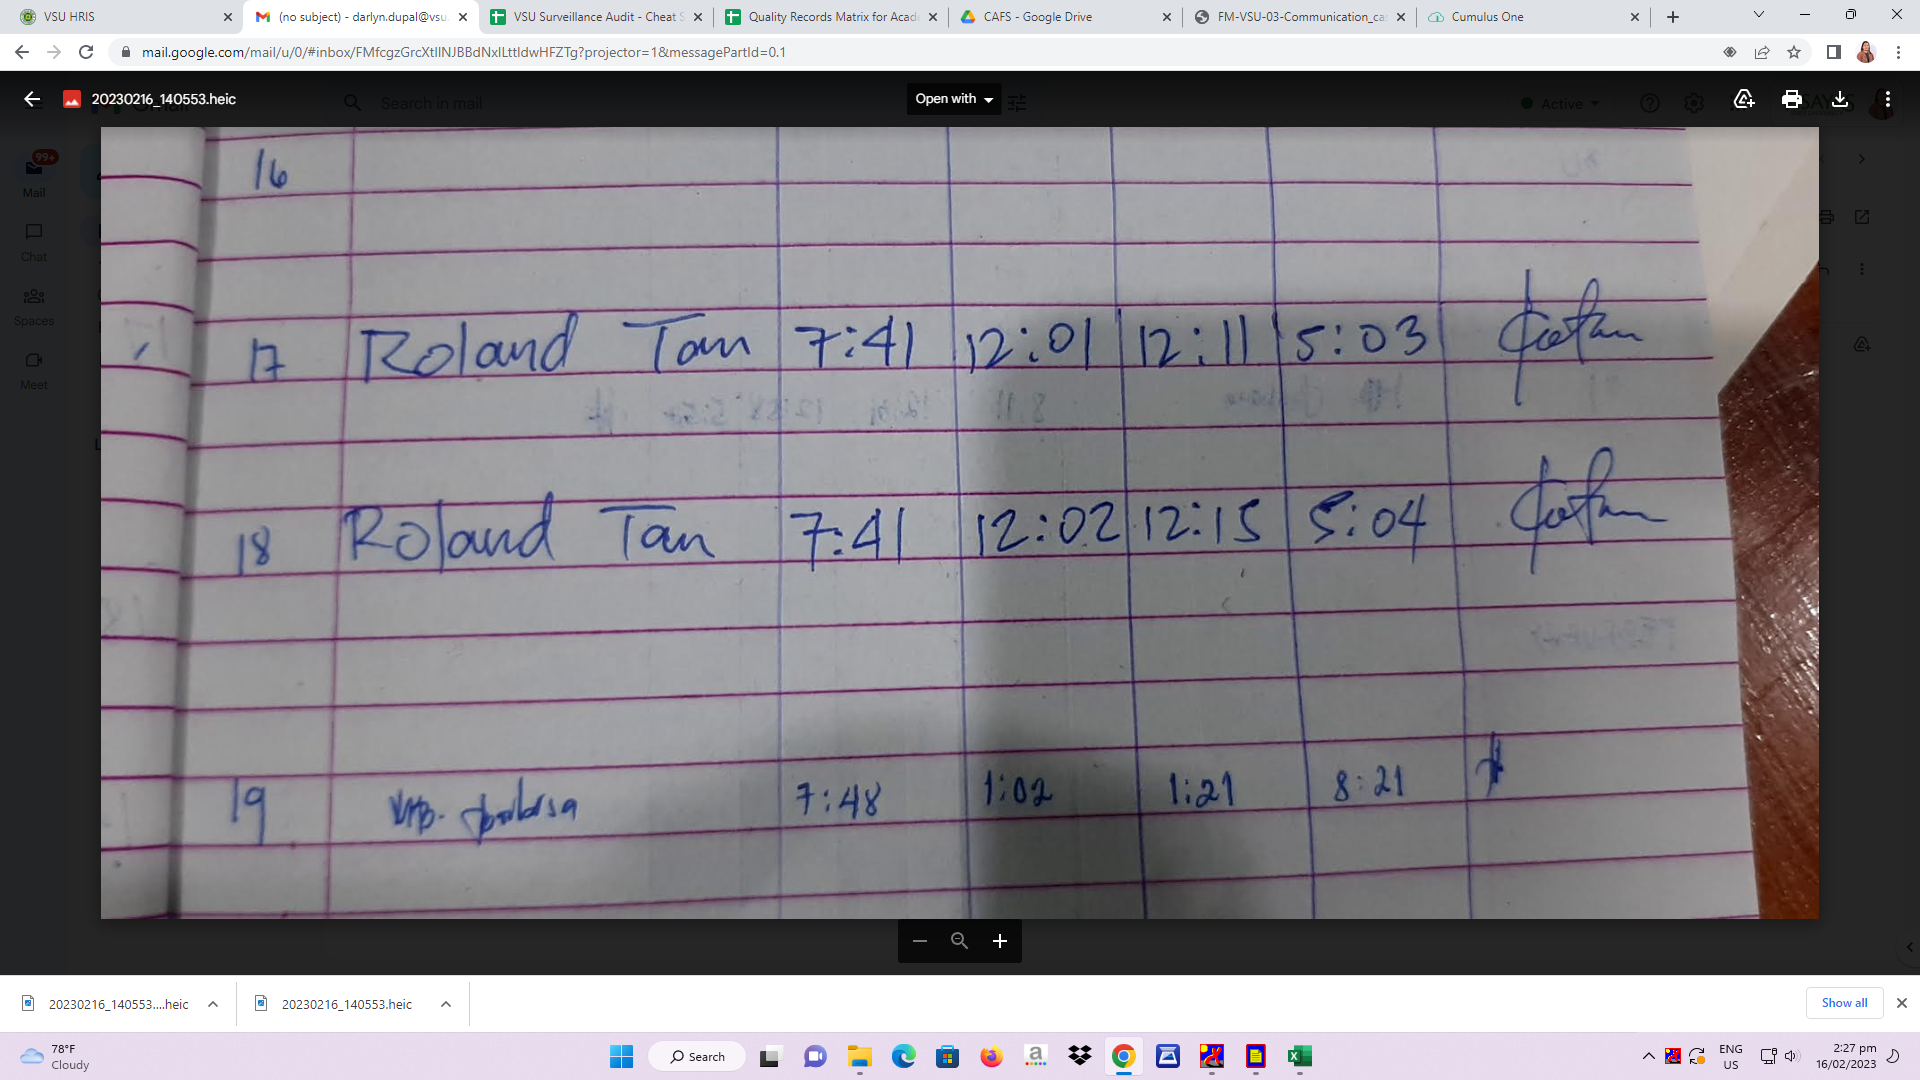 VSU HRIS (no subject) - darlyn.dupal@vsu. VSU Surveillance Audit - Cheat S Quality Records Matrix for Acade CAFS - Google Drive FM-VSU-03-Communication_ca Cumulus One
mail.google.com/mail/u/0/#inbox/
20230216_140553.heic Search in mail Open with Active
99+
Mail
Chat
Spaces
Meet
16
17 Roland Tan 7:41 12:01 12:11 5:03
18 Roland Tan 7:41 12:02 12:15 5:04
19 7:48 1:02 1:21 8:21
20230216_140553....heic 20230216_140553.heic Show all
78°F
Cloudy
Search
ENG
US
2:27 pm
16/02/2023